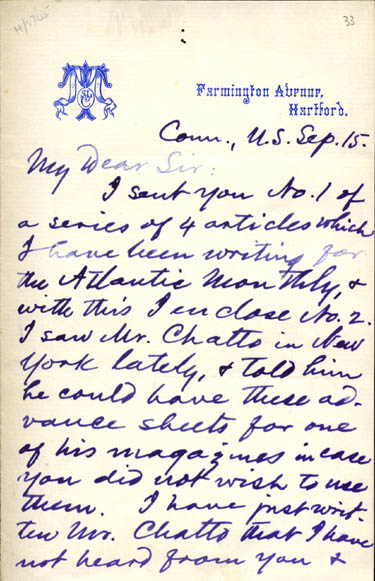 33
Farmington Avenue,
Hartford.
Conn., U.S. Sep. 15.
My Dear Sir:
I sent you No. 1 of
a series of 4 articles which
I have been writing for
the Atlantic Monthly, &
with this I enclose No. 2.
I saw Mr. Chatto in New
York lately, & told him
he could have these ad-
vance sheets for one
of his magazines in case
you did not wish to use
them. I have just writ-
ten Mr. Chatto that I have
not heard from you &